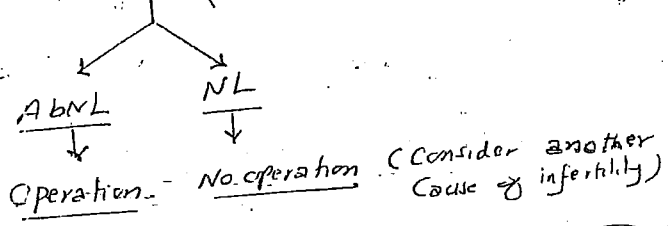 AbNL NL
Operation No operation (Consider another
Cause of infertility)